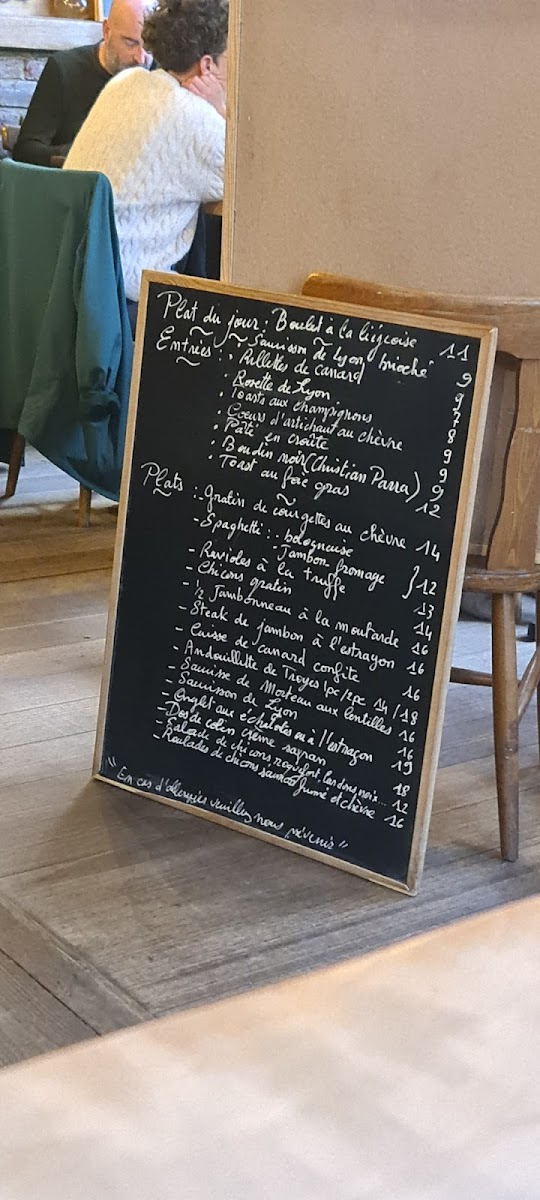 Plat du jour : Boulet à la liégeoise 11
Entrées : • Saucisson de Lyon brioché 9
• Rillettes de canard 9
• Rosette de Lyon 7
• Toasts aux champignons 8
• Cœurs d'artichaut au chèvre 9
• Pâté en croûte 9
• Boudin noir (Christian Parra) 9
• Toast au foie gras 12
Plats : - Gratin de courgettes au chèvre 14
- Spaghetti : - bolognaise
- Jambon-fromage } 12
- Ravioles à la truffe 13
- Chicons gratin 14
- ½ Jambonneau à la moutarde 16
- Steak de jambon à l'estragon 16
- Cuisse de canard confite 16
- Andouillette de Troyes 1pc/2pc 14/18
- Saucisse de Morteau aux lentilles 16
- Saucisson de Lyon 16
- Onglet aux échalotes ou à l'estragon 19
- Dos de colin crème safran 18
- Salade de chicons roquefort, lardons, noix... 12
- Roulades de chicons saumon fumé et chèvre 16
"En cas d'allergies veuillez nous prévenir"